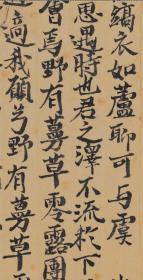 縞衣如蘆聊可与虞
思遇時也君之澤不流於下
會焉野有蔓草零露團
適我願兮野有蔓草